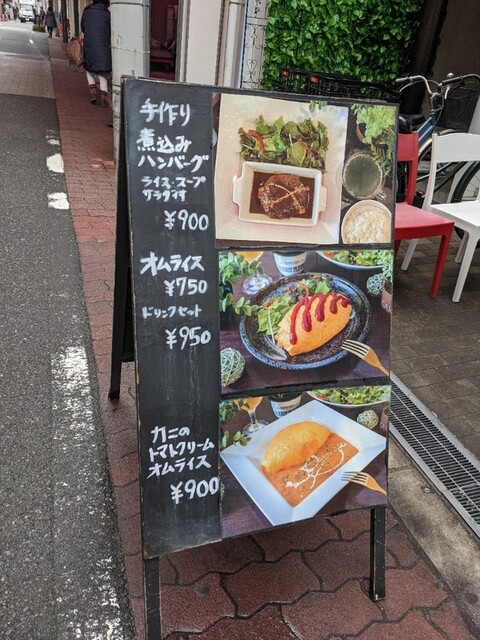 手作り
煮込み
ハンバーグ
ライス・スープ
サラダ付
¥900
オムライス
¥750
ドリンクセット
¥950
カニの
トマトクリーム
オムライス
¥900